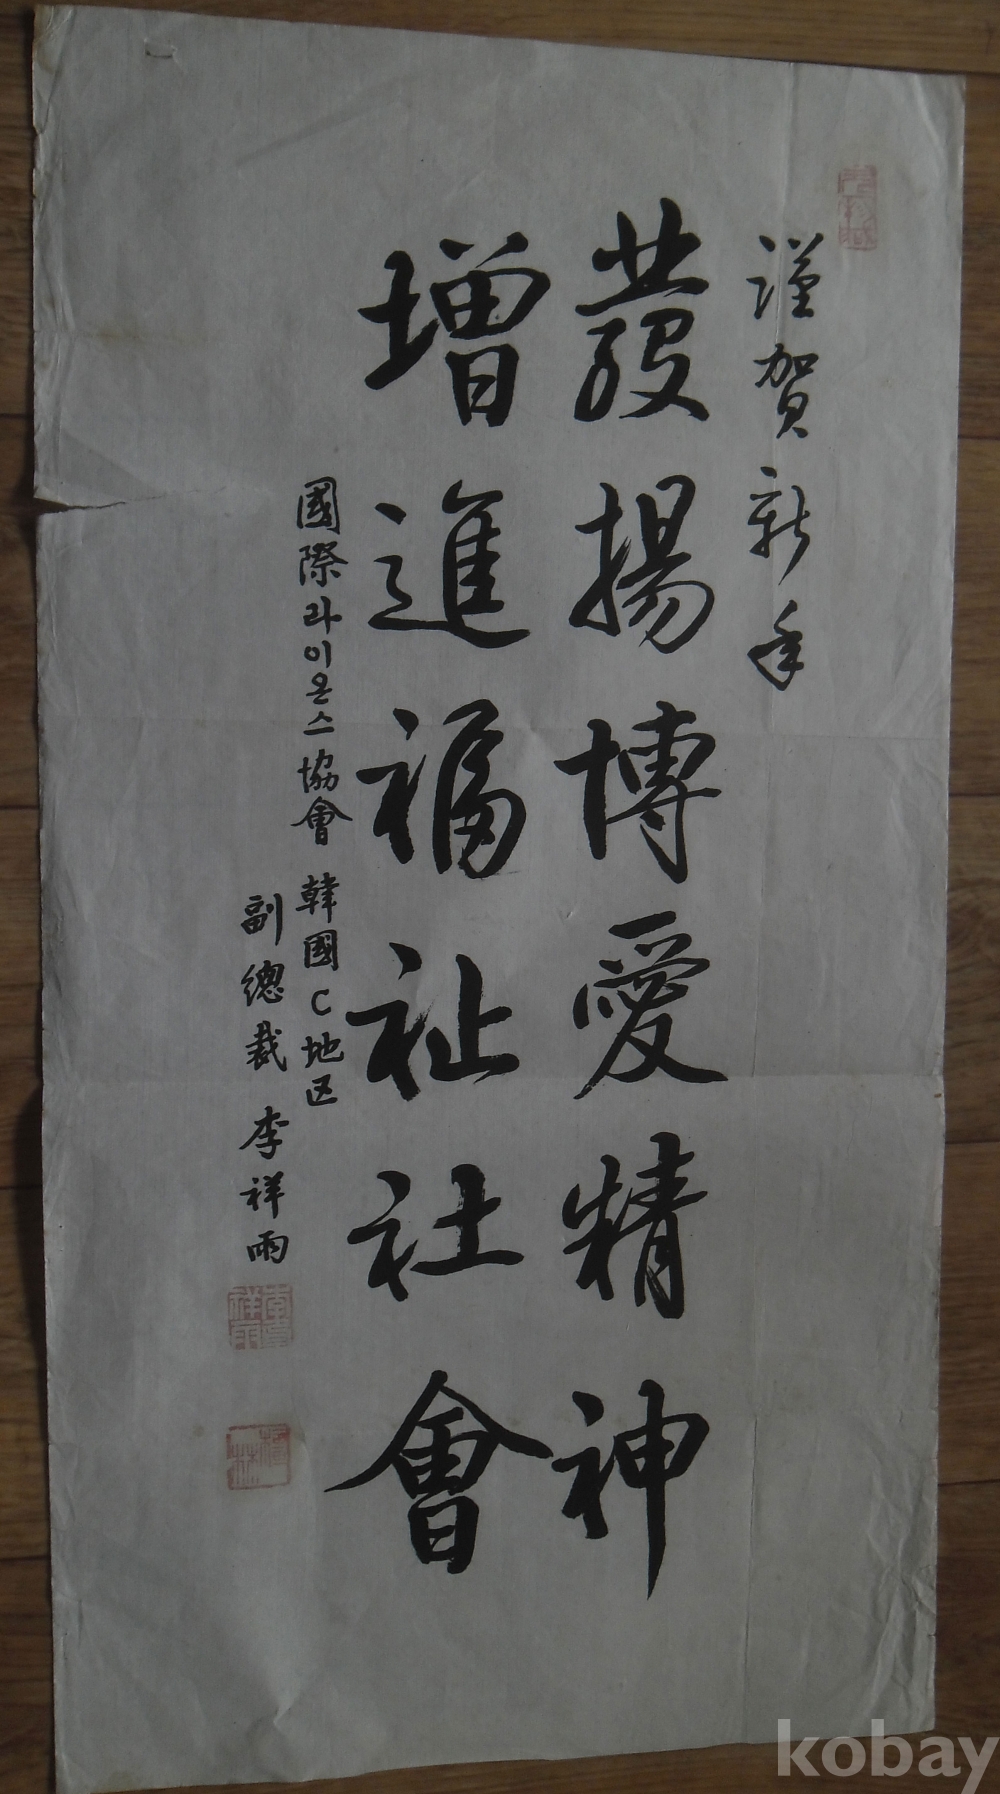 謹賀新年
發揚博愛精神
增進福祉社會
國際라이온스協會 韓國C地区
副總裁 李祥雨
kobay